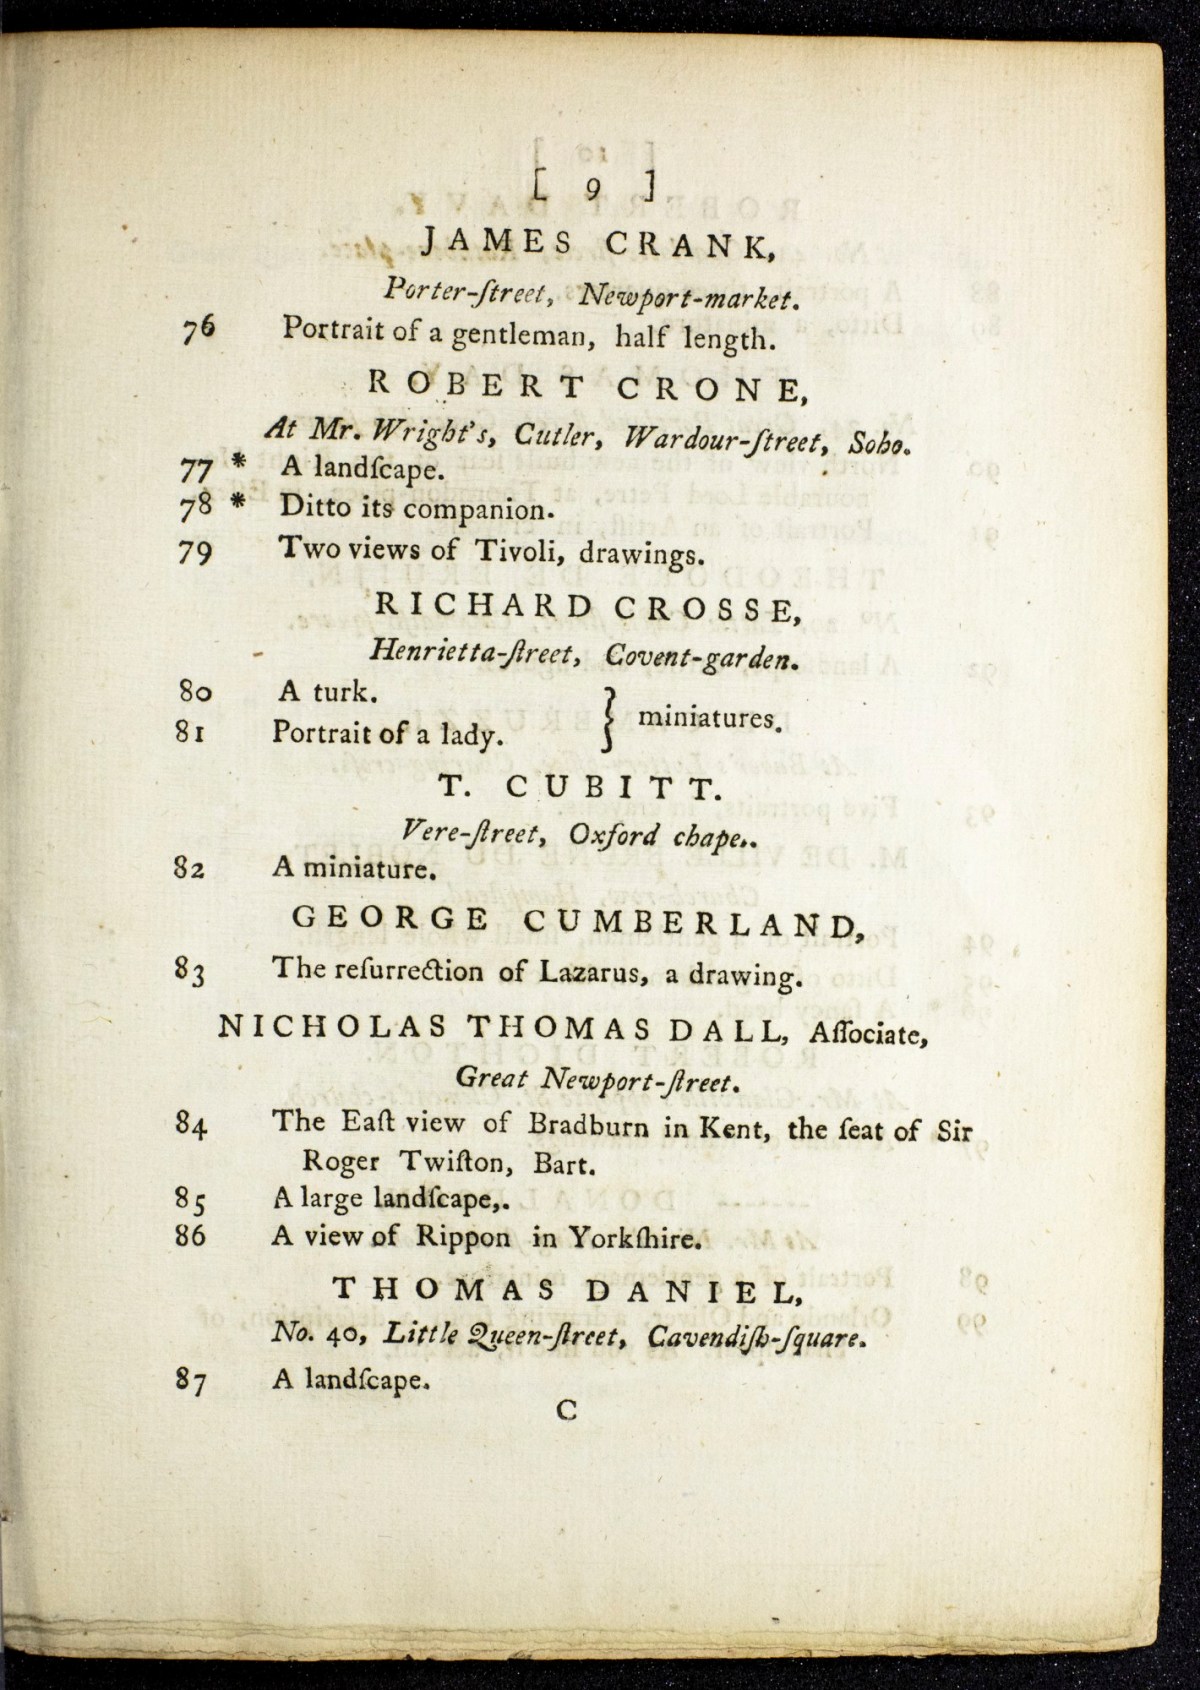 [ 9 ]
JAMES CRANK,
Porter-ſtreet, Newport-market.
76 Portrait of a gentleman, half length.
ROBERT CRONE,
At Mr. Wright's, Cutler, Wardour-ſtreet, Soho.
77 * A landſcape.
78 * Ditto its companion.
79 Two views of Tivoli, drawings.
RICHARD CROSSE,
Henrietta-ſtreet, Covent-garden.
80 A turk.
81 Portrait of a lady. } miniatures.
T. CUBITT.
Vere-ſtreet, Oxford chape..
82 A miniature.
GEORGE CUMBERLAND,
83 The reſurrection of Lazarus, a drawing.
NICHOLAS THOMAS DALL, Aſſociate,
Great Newport-ſtreet.
84 The Eaſt view of Bradburn in Kent, the ſeat of Sir
Roger Twiſton, Bart.
85 A large landſcape,.
86 A view of Rippon in Yorkſhire.
THOMAS DANIEL,
No. 40, Little Queen-ſtreet, Cavendiſh-ſquare.
87 A landſcape.
C